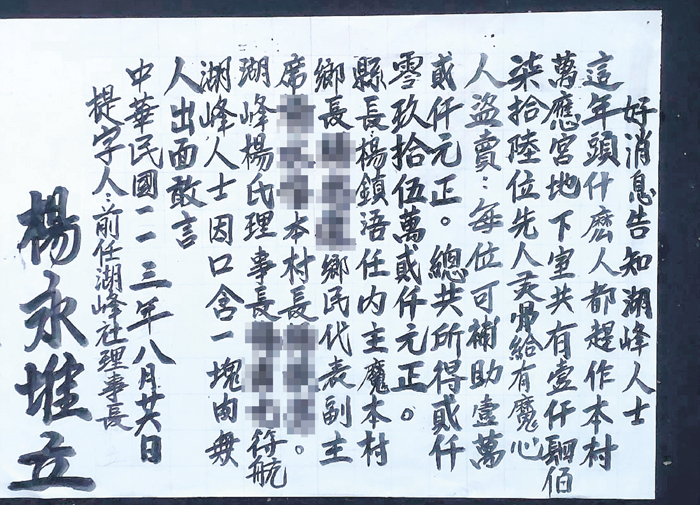 好消息告知湖峰人士
這年頭什麼人都趕作本村
萬應宮地下室共有壹仟駟佰
柒拾陸位先人灵骨給有魔心
人盜賣：每位可補助壹萬
貳仟元正。總共所得貳仟
零玖拾伍萬貳仟元正。
縣長：楊鎮浯任內主魔本村
鄉長 鄉民代表副主
席 本村長 。
湖峰楊氏理事長 符航
湖峰人士因口含一塊肉無
人出面敢言
中華民國一一三年八月廿六日
提字人：前任湖峰社理事長
楊永堆立